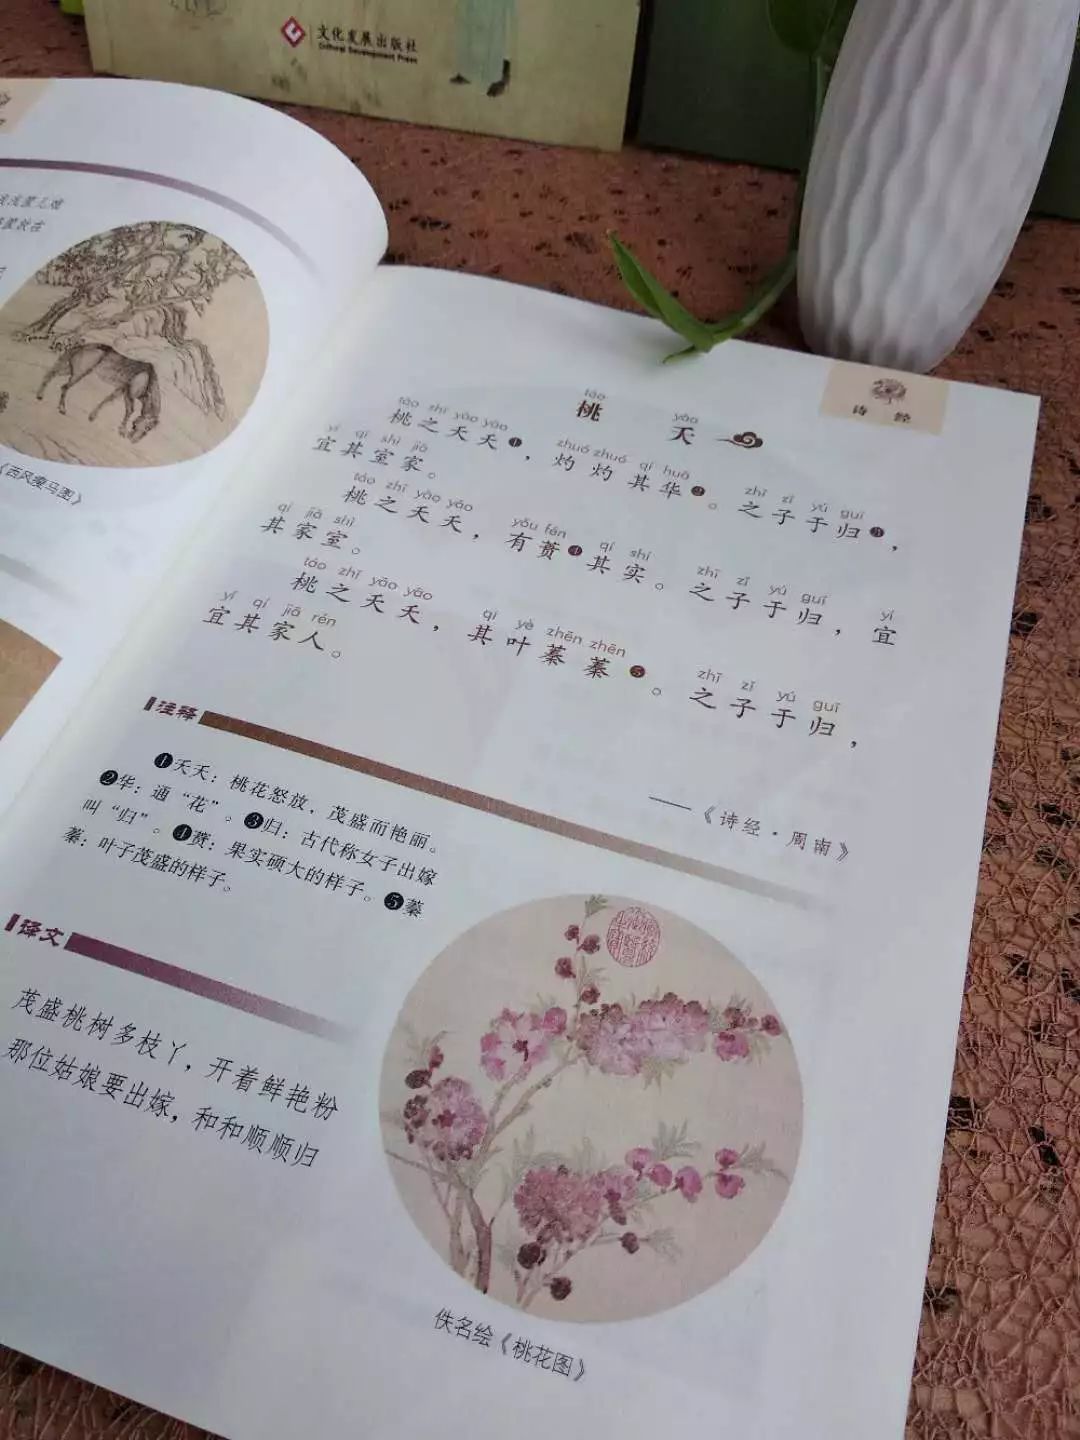 文化发展出版社
Cultural Development Press
《西风瘦马图》
诗经
táo yāo
桃夭
táo zhī yāo yāo zhuó zhuó qí huā zhī zǐ yú guī
桃之夭夭❶，灼灼其华❷。之子于归❸，
yí qí shì jiā
宜其室家。
táo zhī yāo yāo yǒu fén qí shí zhī zǐ yú guī yí
桃之夭夭，有蕡❹其实。之子于归，宜
qí jiā shì
其家室。
táo zhī yāo yāo qí yè zhēn zhēn zhī zǐ yú guī
桃之夭夭，其叶蓁蓁❺。之子于归，
yí qí jiā rén
宜其家人。
——《诗经·周南》
注释
❶夭夭：桃花怒放，茂盛而艳丽。
❷华：通“花”。❸归：古代称女子出嫁
叫“归”。❹蕡：果实硕大的样子。❺蓁
蓁：叶子茂盛的样子。
译文
茂盛桃树多枝丫，开着鲜艳粉
那位姑娘要出嫁，和和顺顺归
佚名绘《桃花图》